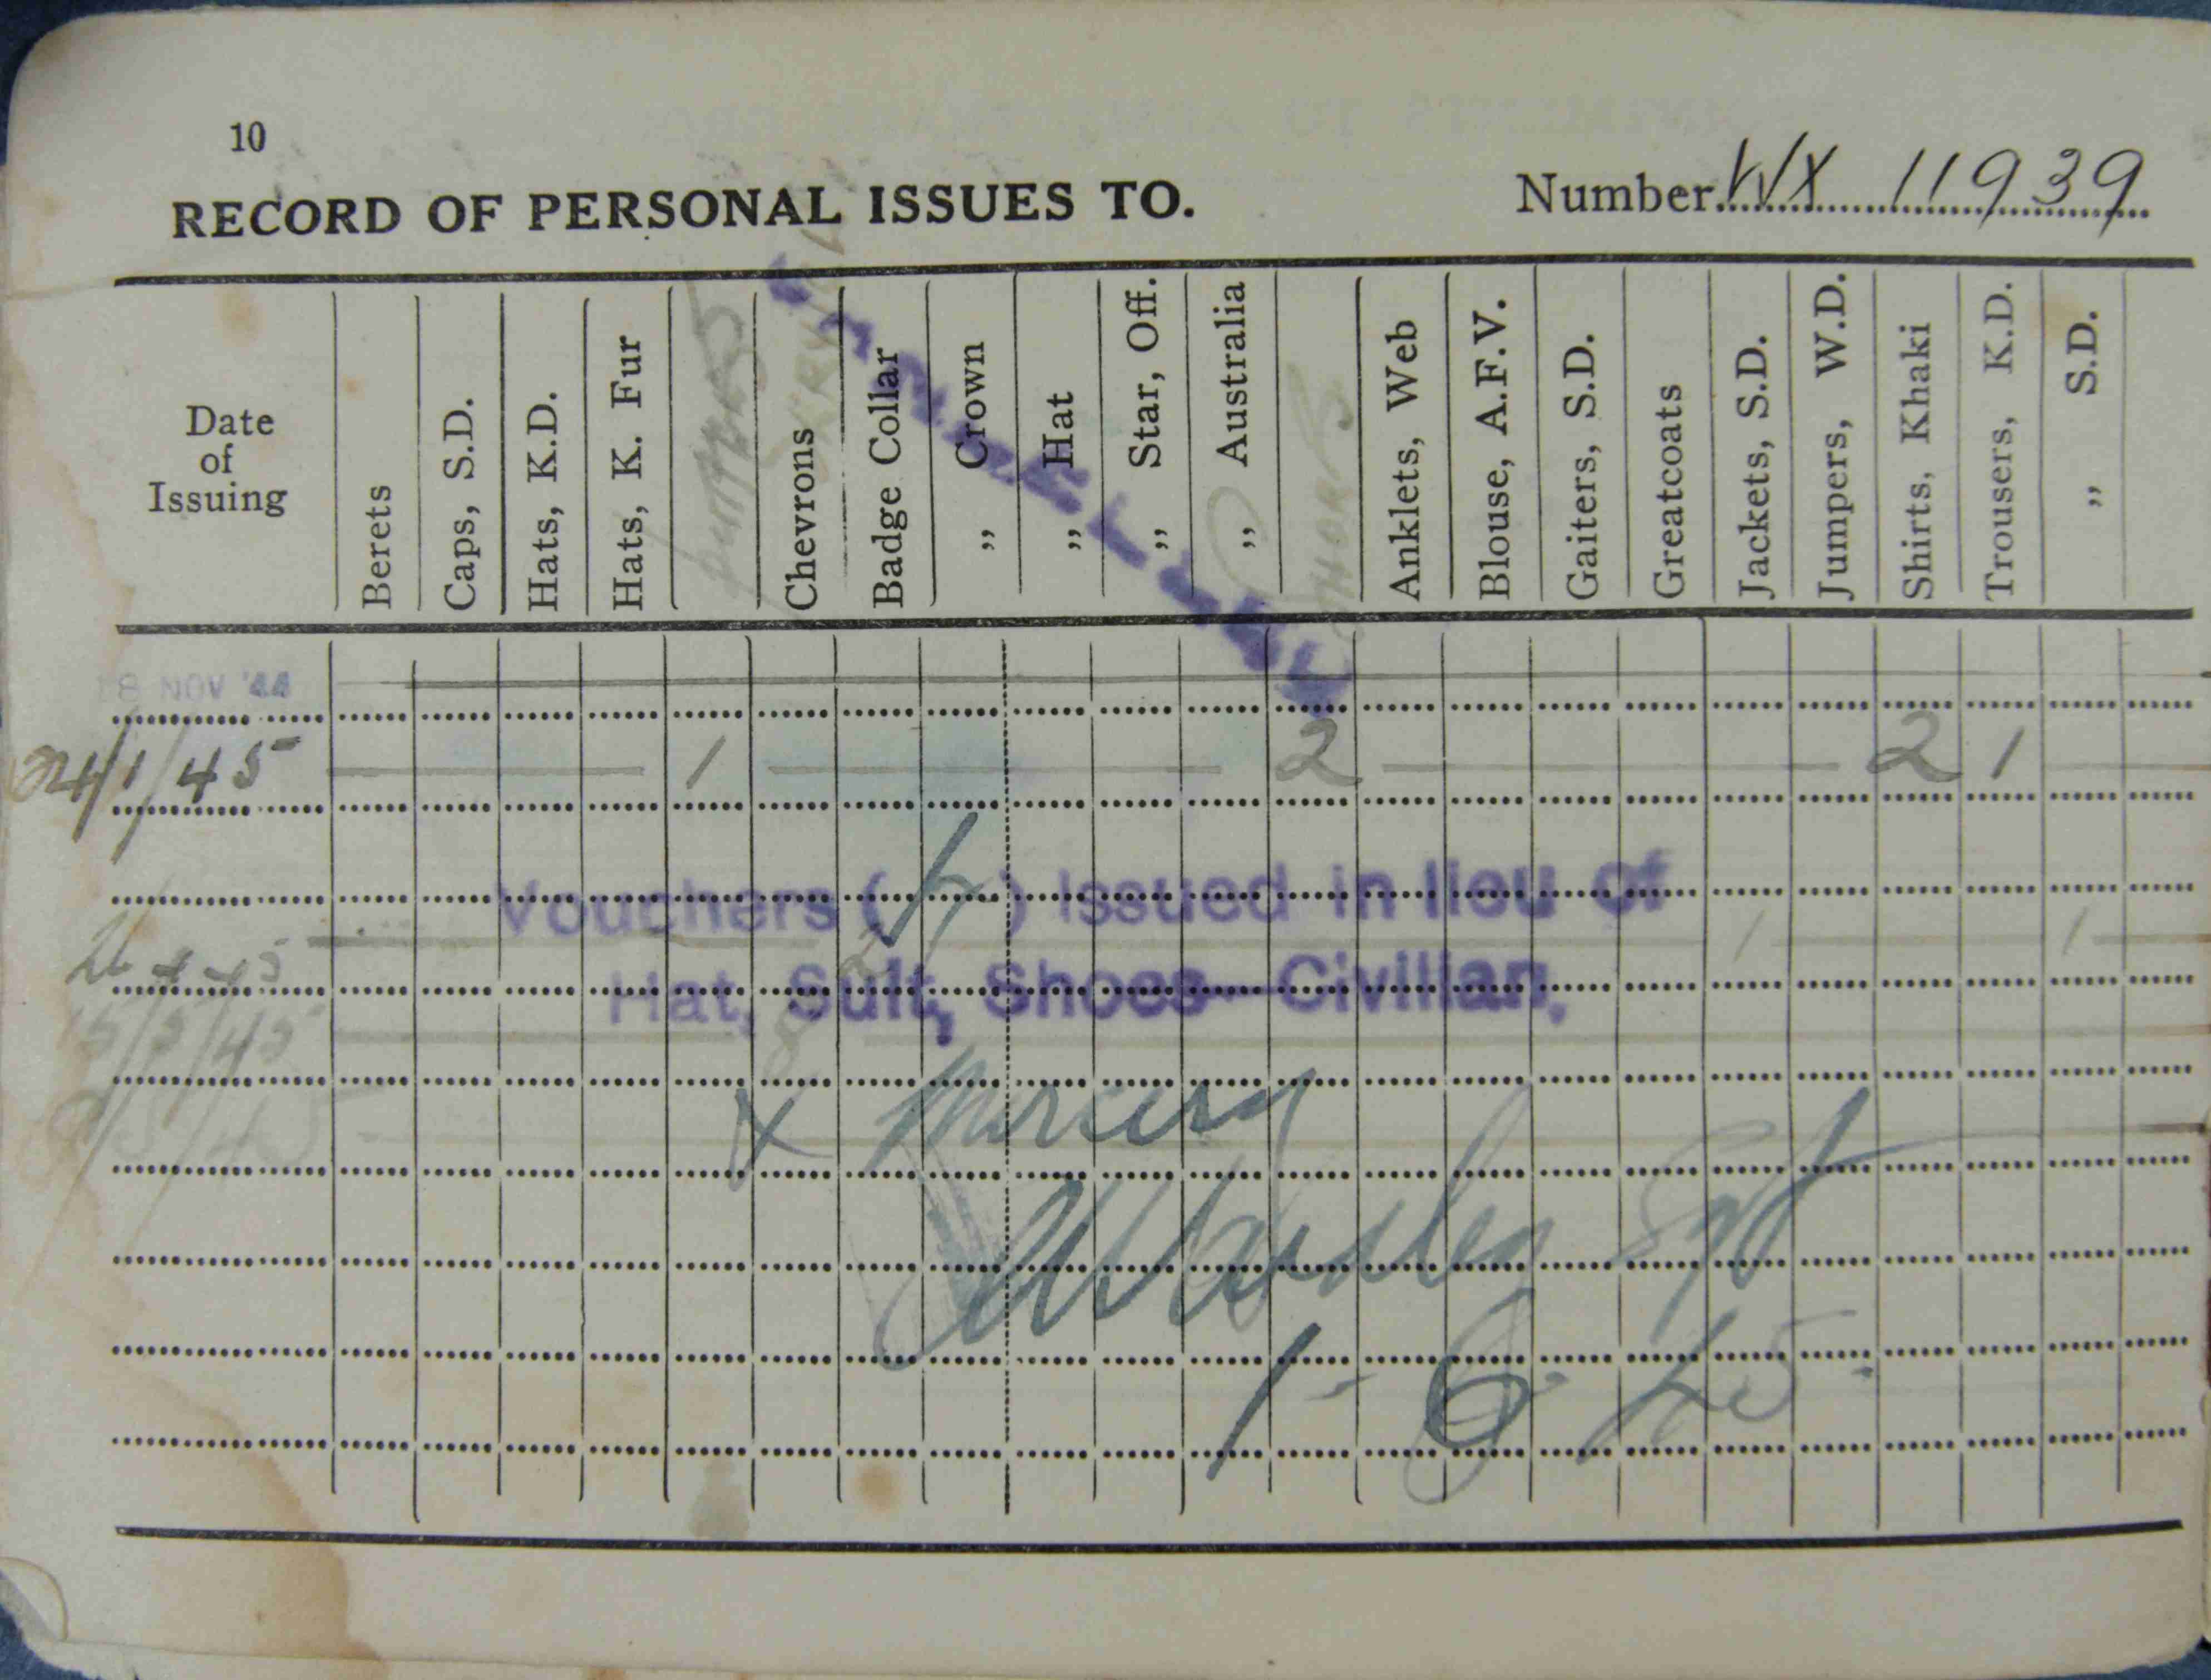 10
RECORD OF PERSONAL ISSUES TO.
Number WX 11939
Date of Issuing
Berets
Caps, S.D.
Hats, K.D.
Hats, K. Fur
Chevrons
Badge Collar
„ Crown
„ Hat
„ Star, Off.
„ Australia
Anklets, Web
Blouse, A.F.V.
Gaiters, S.D.
Greatcoats
Jackets, S.D.
Jumpers, W.D.
Shirts, Khaki
Trousers, K.D.
„ S.D.
8 NOV '44
24/1/45 1 2 2 1
Vouchers ( ) Issued in lieu of
1 1
Hat, Suit, Shoes—Civilian.
15/5/45
Sgt
1-6-45